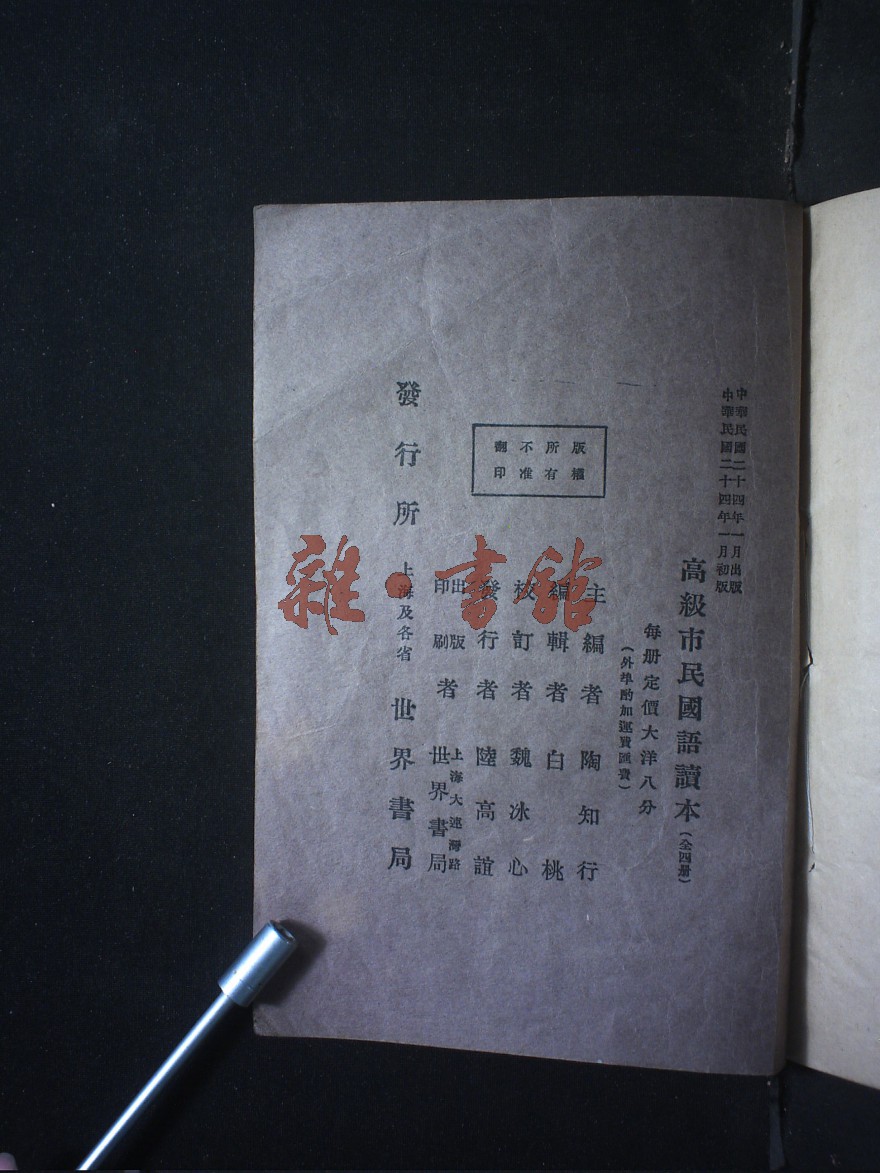 中華民國二十四年一月出版
中華民國二十四年一月初版
高級市民國語讀本(全四册)
每册定價大洋八分
(外埠酌加運費匯費)
版權
所有
不准
翻印
主編者 陶知行
編輯者 白桃
校訂者 魏冰心
發行者 陸高誼
出版
印刷者 上海大連灣路
世界書局
發行所 上海及各省 世界書局
雜·書館